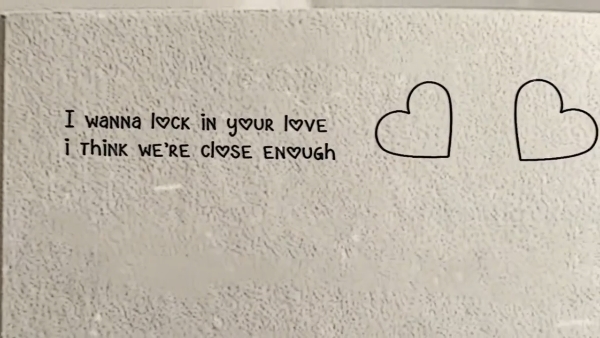 I wanna lock in your love
i think we're close enough